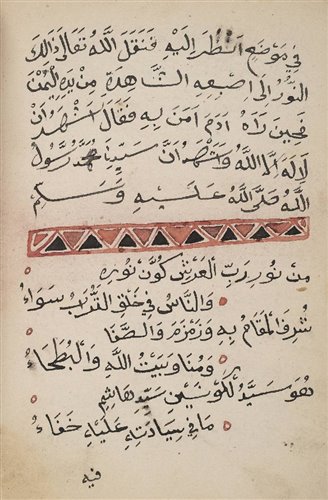 في موضع انظر اليه فنقل الله تعالى ذالك
النور الى اصبعه الشاهدة من يده اليمن
فحين رءاه ادم امن به فقال اشهد ان
لا اله الا الله واشهد ان سيدنا محمد رسول
الله صلى الله عليه وسلم
من نور رب العرش كون نوره
والناس في خلق الترب سواء
شرف المقام به وزمزم والصفا
ومنا وبيت الله والبطحاء
هو سيد الكونين سيد هاشم
ما في سيادته عليه خفاء
فيه